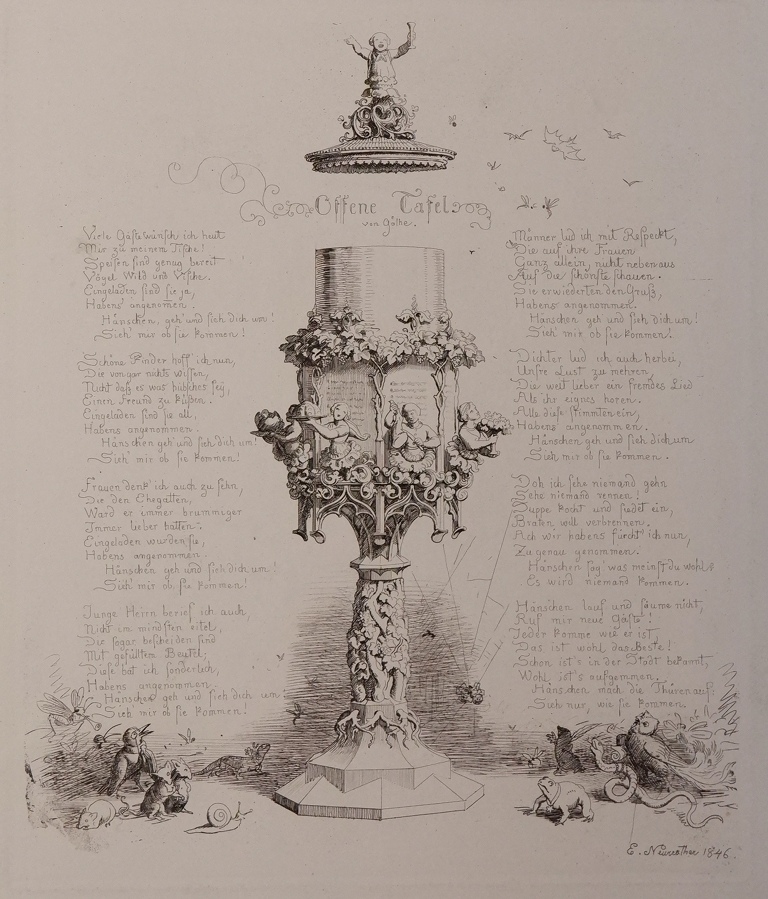 Offene Tafel
von Göthe.
Viele Gäste wünsch ich heut
Mir zu meinem Tische!
Speisen sind genug bereit
Vögel Wild und Fische.
Eingeladen sind sie ja,
Habens angenommen.
Hänschen, geh' und sieh dich um!
Sieh' mir ob sie kommen!
Schöne Kinder hoff' ich nun,
Die von gar nichts wissen,
Nicht daß es was hübsches sey,
Einen Freund zu küßen.
Eingeladen sind sie all,
Habens angenommen.
Hänschen geh' und sieh dich um!
Sieh' mir ob sie kommen!
Frauen denk' ich auch zu sehn,
Die den Ehegatten,
Ward er immer brummiger
Immer lieber hatten.
Eingeladen wurden sie,
Habens angenommen.
Hänschen geh und sieh dich um!
Sieh' mir ob sie kommen!
Junge Herrn berief ich auch,
Nicht im mindsten eitel,
Die sogar bescheiden sind
Mit gefülltem Beutel;
Diese bat ich sonderlich,
Habens angenommen.
Hänschen geh und sieh dich um!
Sieh mir ob sie kommen!
Männer lud ich mit Respect,
Die auf ihre Frauen
Ganz allein, nicht neben aus
Auf die schönste schauen.
Sie erwiederten den Gruß,
Habens angenommen.
Hänschen geh und sieh dich um!
Sieh mir ob sie kommen!
Dichter lud ich auch herbei,
Unsre Lust zu mehren,
Die weit lieber ein fremdes Lied
Als ihr eignes hören.
Alle diese stimmten ein,
Habens angenommen.
Hänschen geh und sieh dich um
Sieh mir ob sie kommen.
Doch ich sehe niemand gehn
Sehe niemand rennen!
Suppe kocht und siedet ein,
Braten will verbrennen.
Ach wir habens fürcht' ich nun,
Zu genau genommen.
Hänschen sag' was meinst du wohl?
Es wird niemand kommen.
Hänschen lauf und säume nicht,
Ruf mir neue Gäste!
Jeder komme wie er ist,
Das ist wohl das Beste!
Schon ist's in der Stadt bekannt,
Wohl ist's aufgenommen.
Hänschen mach die Thüren auf:
Sieh nur, wie sie kommen.
E. Neureuther 1846.